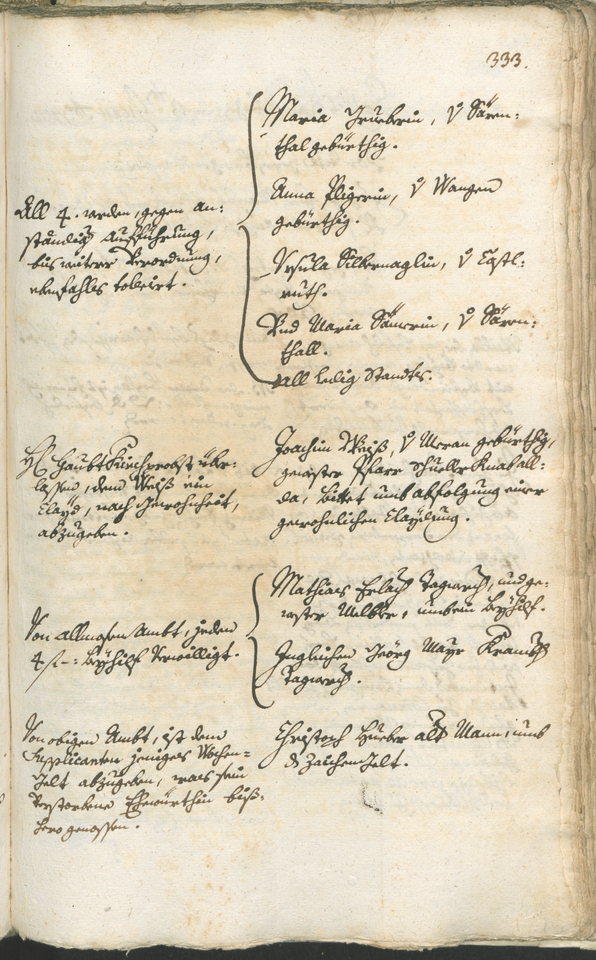 333.
Maria Grueberin, v Sären:
thal gebürthig.
Anna Pligerin, v Wangen
gebürthig.
Ursula Silbernaglin, v Castl:
ruth.
Und Maria Sämerin, v Sären:
thall.
All ledig Standts.
All 4. werden, gegen an:
ständig Aufführung,
bis weiterer Verordnung,
ebenfahls tolerirt.
Joachim Weiß, v Meran gebürthig,
gewester Pfarr Schueller Knab all:
da, bittet umb abfolgung einer
gewohnlichen Claydung.
H Haubt Kürchprobst über:
lassen, dem Weiß ein
Clayd, nach Gewohnheit,
abzugeben.
Mathias Erlach Tagwerch, und ge:
wester, umb ein Beyhilf.
Ingleichen Geörg Mayr
Tagwerch.
Von Allmosen Ambt, jeden
4 f –: Beyhilf verwilligt.
Christoph Hueber alt Mann, umb
ds Zaichen Gelt.
Von obigen Ambt, ist dem
Supplicanten jeniges Wochen=
Gelt abzugeben, was sein
Verstorbene Ehewürthin biß:
hero genossen.